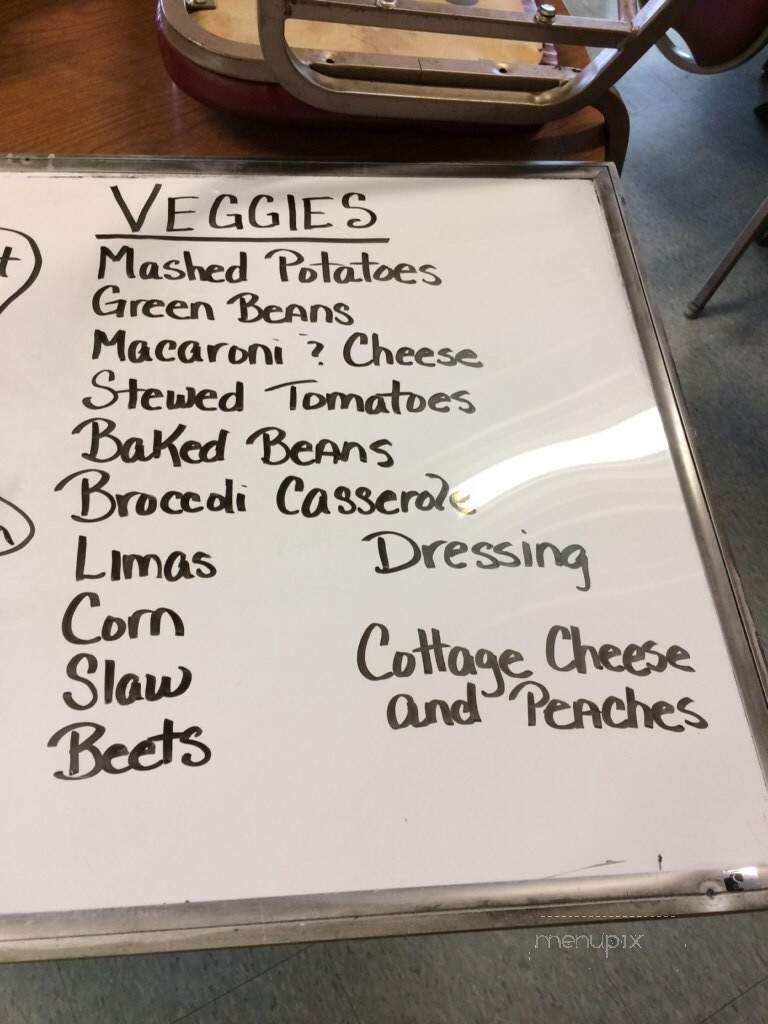 VEGGIES
Mashed Potatoes
Green Beans
Macaroni ? Cheese
Stewed Tomatoes
Baked Beans
Broccoli Casserole
Limas Dressing
Corn
Cottage Cheese
Slaw
and Peaches
Beets
menupix